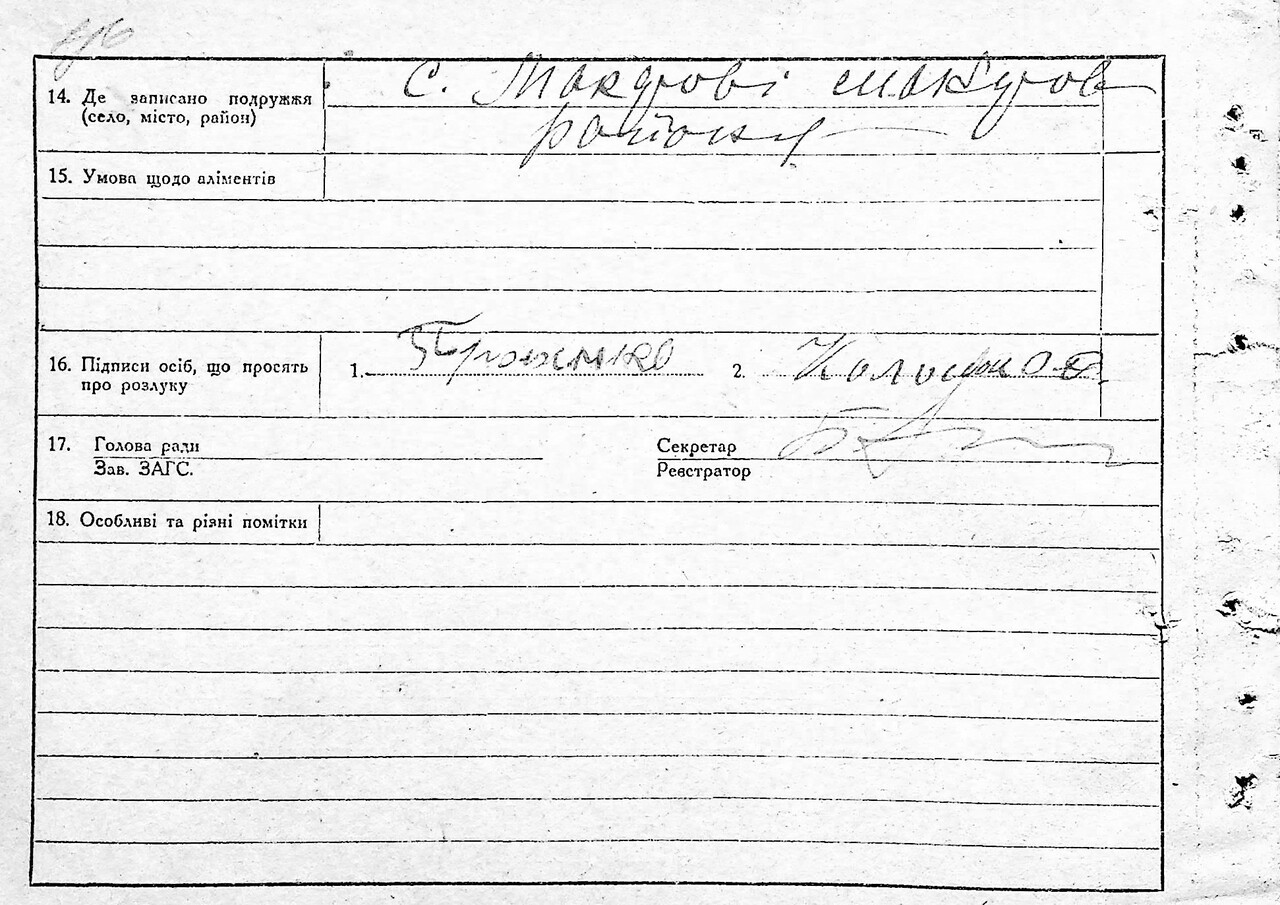 14. Де записано подружжя
(село, місто, район)
с. Макарові Макаров
району
15. Умова щодо аліментів
16. Підписи осіб, що просять
про розлуку
1.
2.
17. Голова ради
Зав. ЗАГС.
Секретар
Реєстратор
18. Особливі та різні помітки